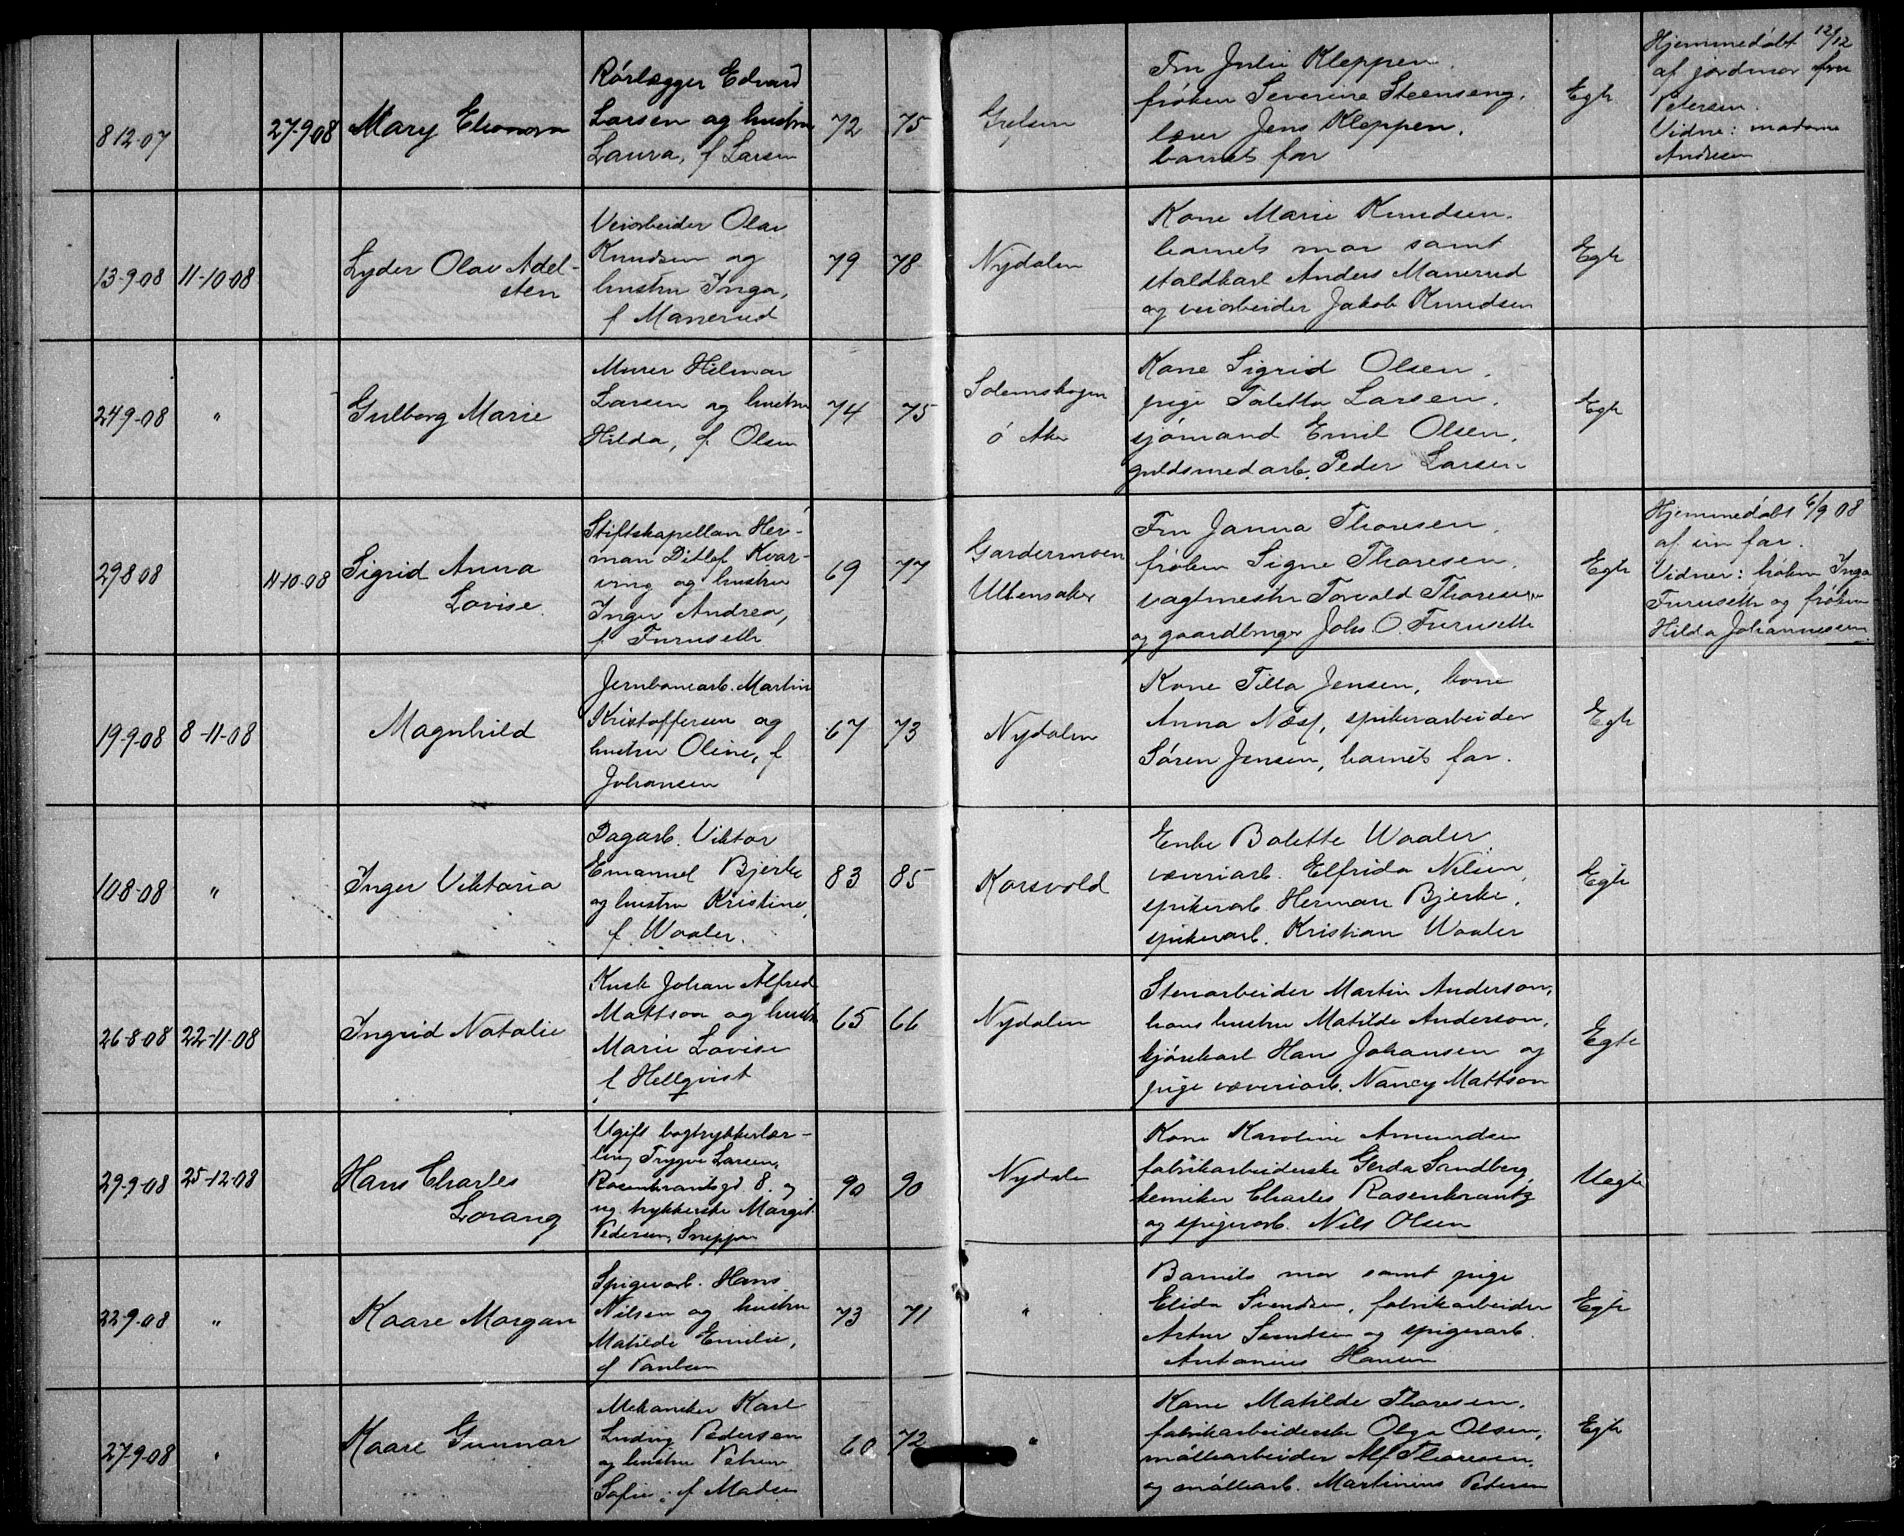 8-12-07
27-9-08
Mary Eleonora
Rørlægger Edvard
Larsen og hustru
Laura, f Larsen
72
75
Grefsen
Fru Julie Kleppen.
frøken Severine Steenseng.
lærer Jens Kleppen.
barnets far
Egte
Hjemmedøbt 12/12
af jordmor fru
Petersen.
Vidne: madame
Andresen
13-9-08
11-10-08
Lyder Olav Adel-
sten
Veiarbeider Olav
Knudsen og
hustru Inga,
f Manerud
79
78
Nydalen
Kone Marie Knudsen.
barnets mor samt
staldkarl Anders Manerud
og veiarbeider Jakob Knudsen
Egte
24-9-08
"
Gulborg Marie
Murer Hilmar
Larsen og hustru
Hilda, f Olsen
74
75
Solemskogen
ö Aker
Kone Sigrid Olsen.
pige Saletta Larsen.
sjømand Emil Olsen.
guldsmedarb. Peder Larsen
Egte
29-8-08
11-10-08
Sigrid Anna
Lovise
Stiftskapellan Her-
man Ditlef Kvar-
ving og hustru
Inger Andrea,
f Furuseth
69
77
Gardermoen
Ullensaker
Fru Janna Thoresen.
frøken Signe Thoresen.
vagtmester Torvald Thoresen
og gaardbruger Johs. O. Furuseth
Egte
Hjemmedøbt 6/9 08
af sin far.
Vidner: frøken Inga
Furuseth og frøken
Hilda Johannessen.
19-9-08
8-11-08
Magnhild
Jernbanearb. Martin
Kristoffersen og
hustru Oline, f
Johansen
67
73
Nydalen
Kone Tilla Jensen, kone
Anna Næss, spikerarbeider
Søren Jensen, barnets far.
Egte
10-8-08
"
Inger Viktoria
Dagarb. Viktor
Emanuel Bjerke
og hustru Kristine,
f. Waaler.
83
85
Korsvold
Enke Bolette Waaler
væveriarb. Elfrida Nilsen,
spikerarb. Herman Bjerke.
spikerarb. Kristian Waaler
Egte
26-8-08
22-11-08
Ingrid Natalie
Kusk Johan Alfred
Mattson og hustru
Marie Lovise
f Hellqvist
65
66
Nydalen
Stenarbeider Martin Anderson,
hans hustru Matilde Anderson,
kjørekarl Hans Johansen og
pige væveriarb. Nancy Mattson
Egte
29-9-08
25-12-08
Hans Charles
Lorang
Ugift bogtrykkerlær-
ling Trygve Larsen,
Rosenkrantsgd 8. og
ug. trykkerske Margit
Pedersen, Snippen
90
90
Nydalen
Kone Karoline Amundsen
fabrikarbeiderske Gerda Sandberg,
kemiker Charles Rosenkrantz
og spigerarb. Nils Olsen
Uegte
22-9-08
"
Kaare Morgan
Spigerarb. Hans
Nilsen og hustru
Matilde Emilie,
f Paulsen
73
71
"
Barnets mor samt pige
Elida Svendsen, fabrikarbeider
Artur Svendsen og spigerarb.
Antonius Hansen
Egte
27-9-08
"
Kaare Gunnar
Mekaniker Karl
Ludvig Pedersen
og hustru Petra
Sofie, f Madsen
60
72
"
Kone Matilde Thoresen,
fabrikarbeiderske Olga Olsen,
møllearbeider Alf Thoresen,
og møllearb. Martinius Pedersen
Egte